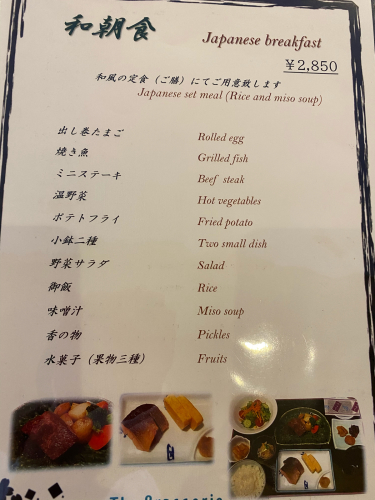 和朝食
Japanese breakfast
¥2,850
和風の定食（ご膳）にてご用意致します
Japanese set meal (Rice and miso soup)
出し巻たまご Rolled egg
焼き魚 Grilled fish
ミニステーキ Beef steak
温野菜 Hot vegetables
ポテトフライ Fried potato
小鉢二種 Two small dish
野菜サラダ Salad
御飯 Rice
味噌汁 Miso soup
香の物 Pickles
水菓子（果物三種） Fruits
The Brasserie